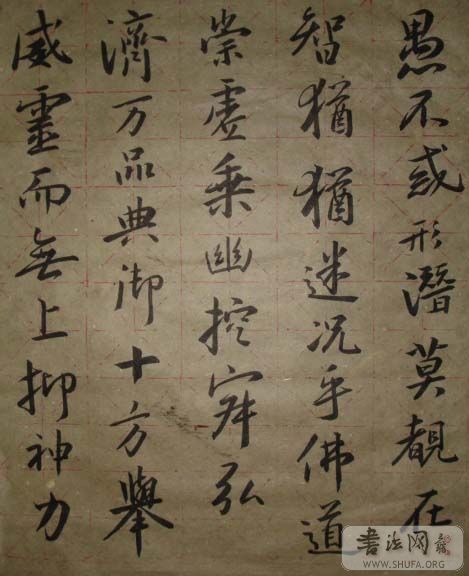 愚不惑形潛莫覩在
智猶猶迷况乎佛道
崇虚乘幽控寂弘
濟万品典御十方舉
威靈而無上抑神力
書法网
WWW.SHUFA.ORG